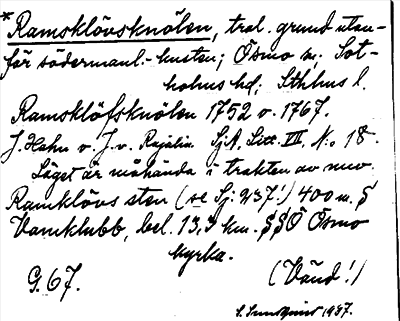 *Ramsklövsknölen, tral. grund utan-
för södermanl.-kusten; Ösmo sn; Sot-
holms hd; Sthlms l.
Ramsklöfsknölen 1752 o. 1767.
J. Hahn o. J. v. Rajalin SjA, Litt. III, N:o 18.
Läget är måhända i trakten av nuv.
Ramklövs sten (se Sj: 237!) 400 m. S
Vamklubb, bel. 13,3 km. SSÖ Ösmo
kyrka.
G. 67. (Vänd!)
1937.